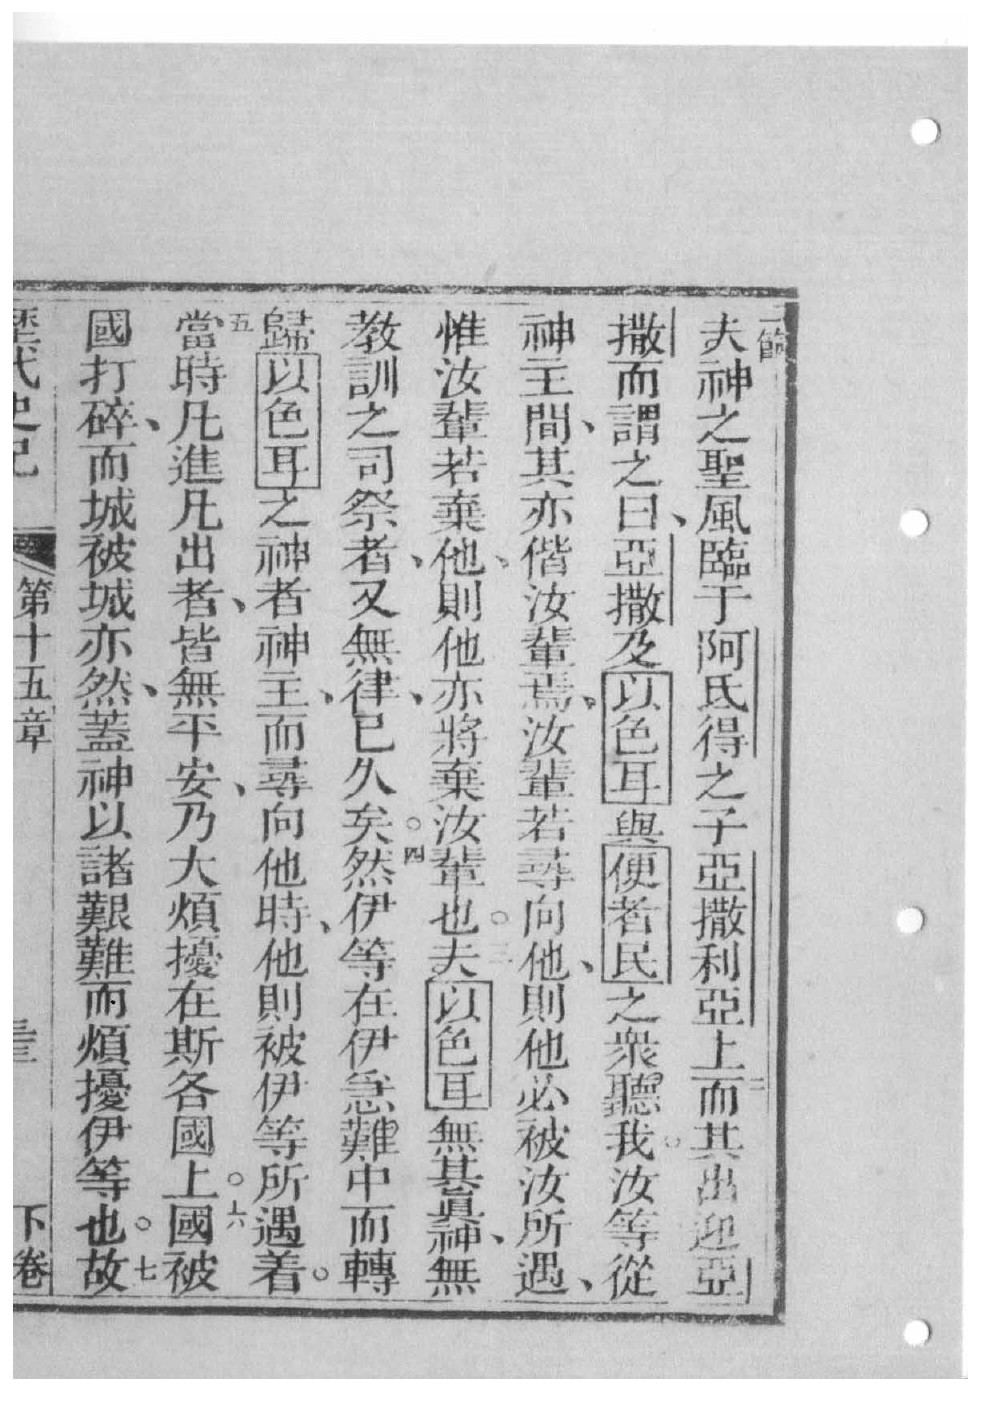 一節
夫神之聖風臨于阿氏得之子亞撒利亞上二而其出迎亞
撒而謂之曰、亞撒及以色耳與便者民之衆聽我。汝等從
神主間、其亦偕汝輩焉、汝輩若尋向他、則他必被汝所遇、
惟汝輩若棄他、則他亦將棄汝輩也。三夫以色耳無其眞神、無
教訓之司祭者、又無律、已久矣。四然伊等在伊急難中而轉
歸以色耳之神者神主、而尋向他時、他則被伊等所遇着。
五當時凡進凡出者、皆無平安、乃大煩擾在斯各國上。六國被
國打碎、而城被城亦然、蓋神以諸艱難而煩擾伊等也。七故
歷代史記 第十五章 下卷